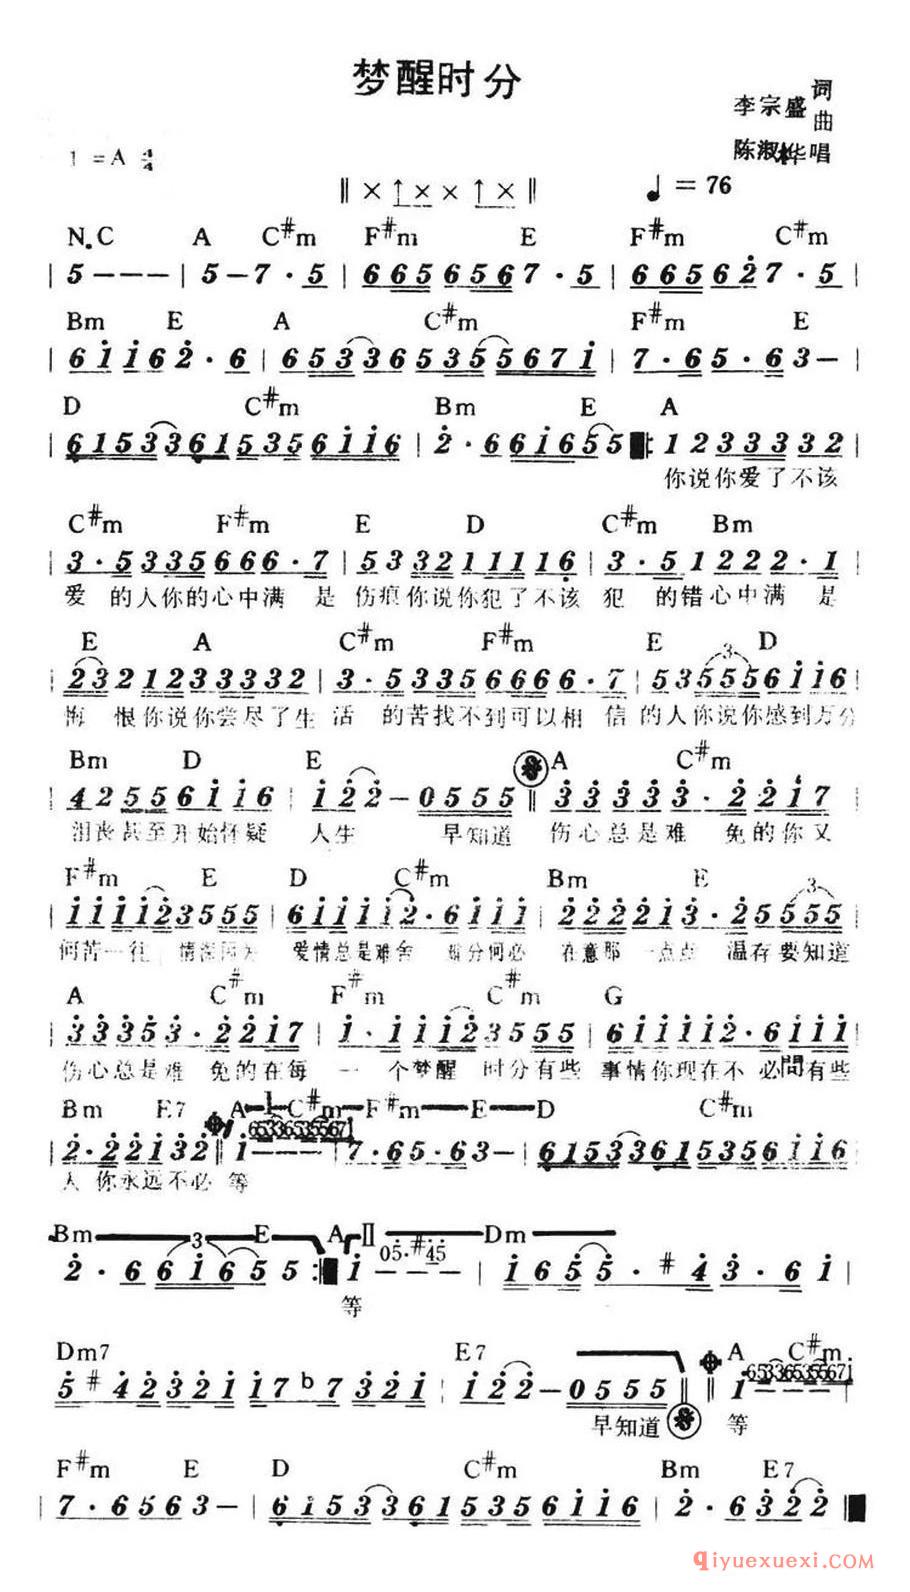 梦醒时分
李宗盛 词曲
陈淑桦 唱
1=A 4/4
♩=76
N.C A C#m F#m E F#m C#m
| 5 - - - | 5 - 7 · 5 | 6 6 5 6 5 6 6 7 · 5 | 6 6 5 6 2 7 · 5 |
Bm E A C#m F#m E
6 1 1 6 2 · 6 | 6 5 3 3 6 5 3 5 5 6 7 1 | 7 · 6 5 · 6 3 - |
D C#m Bm E A
6 1 5 3 3 6 1 5 3 5 6 1 1 6 | 2 · 6 6 1 6 5 5 |: 1 2 3 3 3 3 3 2
你说你爱了不该
C#m F#m E D C#m Bm
3 · 5 3 3 5 6 6 6 · 7 | 5 3 3 2 1 1 1 1 6 | 3 · 5 1 2 2 2 · 1
爱 的人你的心中满 是 伤痕你说你犯了不该 犯 的错心中满 是
E A C#m F#m E D
2 3 2 1 2 3 3 3 3 2 | 3 · 5 3 3 3 5 6 6 6 6 · 7 | 5 3 5 5 5 6 1 1 6
悔 恨你说你尝尽了生 活 的苦找不到可以相 信的人你说你感到万分
Bm D E A C#m
4 2 5 5 6 1 1 6 | 1 2 2 - 0 5 5 5 || 3 3 3 3 3 · 2 2 1 7
沮丧甚至开始怀疑 人生 早知道 伤心总是难 免的你又
F#m E D C#m Bm E
1 1 1 1 2 3 5 5 5 | 6 1 1 1 1 2 · 6 1 1 1 | 2 2 2 2 1 3 · 2 5 5 5 5
何苦一往 情深因为 爱情总是难舍 难分何必 在意那一点点 温存要知道
A C#m F#m C#m G
3 3 3 5 3 · 2 2 1 7 | 1 · 1 1 1 2 3 5 5 5 | 6 1 1 1 1 2 · 6 1 1 1
伤心总是难 免的在每 一 个梦醒 时分有些 事情你现在不 必問有些
Bm E7 A C#m F#m E D C#m
653365355671
2 · 2 2 1 3 2 || 1 - - - | 7 · 6 5 · 6 3 - | 6 1 5 3 3 6 1 5 3 5 6 1 1 6
人 你永远不必 等
Bm E A II Dm
05·#45
2 · 6 6 1 6 5 5 :| 1 - - - | 1 6 5 5 · #4 3 · 6 1 |
等
Dm7 E7 A C#m
653365355671
5 #4 2 3 2 1 1 7 b7 3 2 1 | 1 2 2 - 0 5 5 5 || 1 - - -
早知道 等
F#m E D C#m Bm E7
| 7 · 6 5 6 3 - | 6 1 5 3 3 6 1 5 3 5 6 1 1 6 | 2 · 6 3 2 2 ||
qiyuexuexi.COM